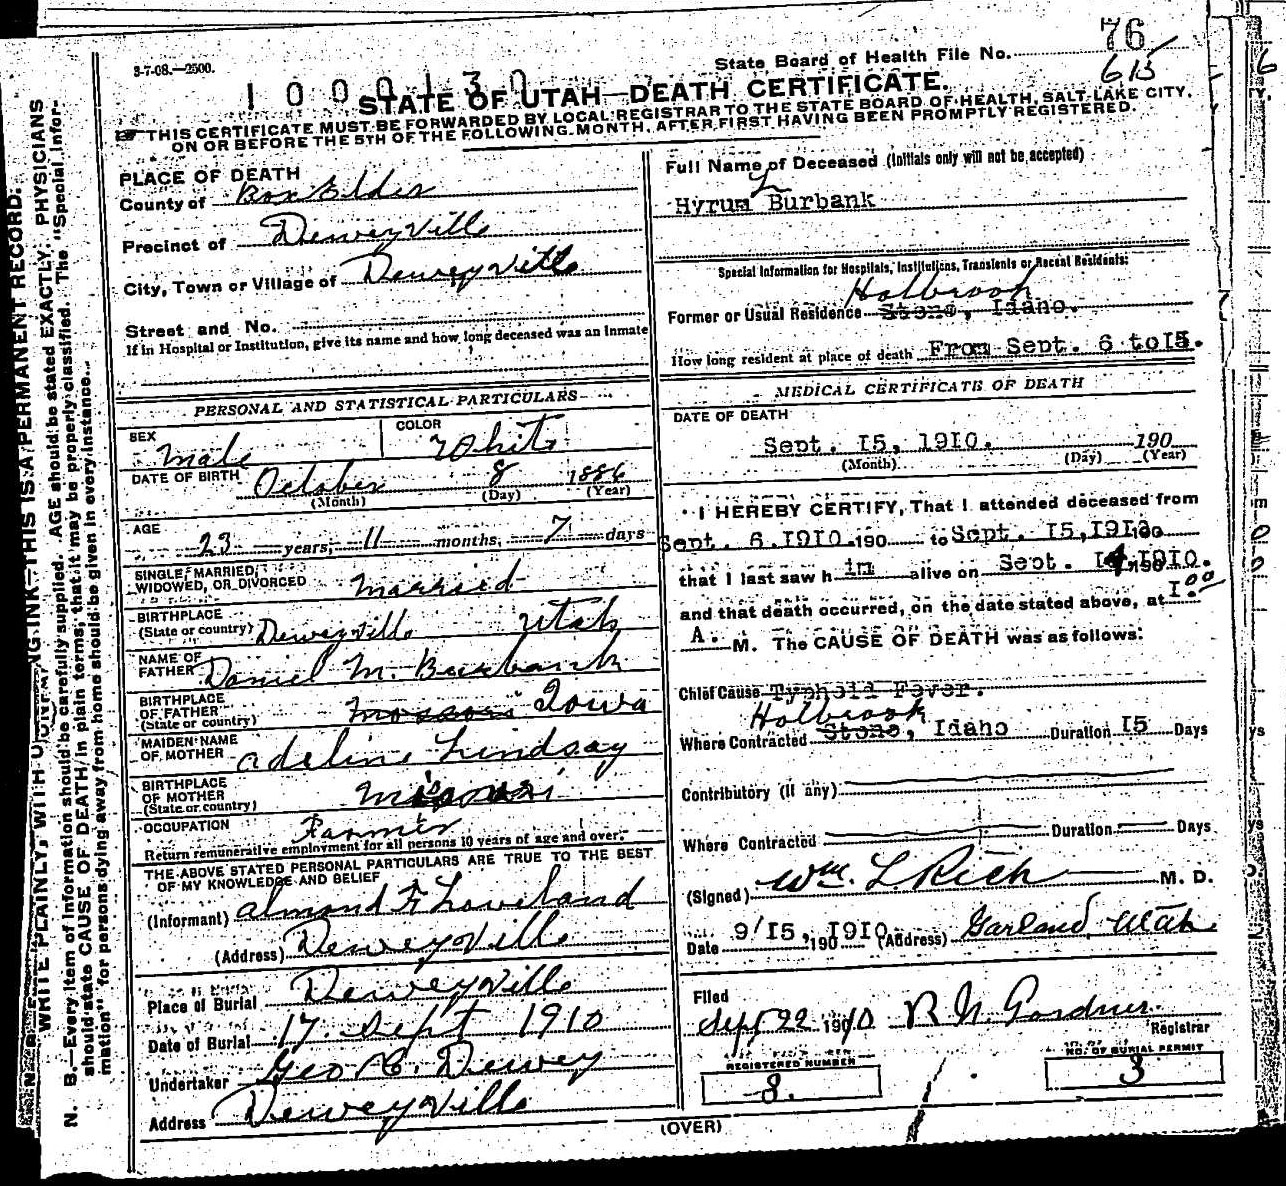 3-7-08.—2500.
State Board of Health File No. 76
615
1000130
STATE OF UTAH—DEATH CERTIFICATE.
THIS CERTIFICATE MUST BE FORWARDED BY LOCAL REGISTRAR TO THE STATE BOARD OF HEALTH, SALT LAKE CITY,
ON OR BEFORE THE 5TH OF THE FOLLOWING MONTH, AFTER FIRST HAVING BEEN PROMPTLY REGISTERED.
PLACE OF DEATH
County of Box Elder
Precinct of Deweyville
City, Town or Village of Deweyville
Street and No.
If in Hospital or Institution, give its name and how long deceased was an Inmate
PERSONAL AND STATISTICAL PARTICULARS
SEX Male
COLOR White
DATE OF BIRTH October 8 1886
(Month) (Day) (Year)
AGE 23 years, 11 months, 7 days
SINGLE, MARRIED,
WIDOWED, OR DIVORCED Married
BIRTHPLACE
(State or country) Deweyville Utah
NAME OF
FATHER Daniel M. Burbank
BIRTHPLACE
OF FATHER
(State or country) Iowa
MAIDEN NAME
OF MOTHER Adeline Lindsay
BIRTHPLACE
OF MOTHER
(State or country)
OCCUPATION Farmer
Return remunerative employment for all persons 10 years of age and over.
THE ABOVE STATED PERSONAL PARTICULARS ARE TRUE TO THE BEST
OF MY KNOWLEDGE AND BELIEF
(Informant) Almond F Loveland
(Address) Deweyville
Place of Burial Deweyville
Date of Burial 17. Sept 1910
Undertaker Geo C. Dewey
Address Deweyville
Full Name of Deceased (Initials only will not be accepted)
L
Hyrum Burbank
Special Information for Hospitals, Institutions, Transients or Recent Residents:
Holbrook
Former or Usual Residence Stone, Idaho.
How long resident at place of death From Sept. 6 to 15.
MEDICAL CERTIFICATE OF DEATH
DATE OF DEATH
Sept. 15, 1910. 190
(Month) (Day) (Year)
I HEREBY CERTIFY, That I attended deceased from
Sept. 6.1910. 190 to Sept. 15,1910. 190
that I last saw h im alive on Sept. 14, 1910.
and that death occurred, on the date stated above, at 1.00
A. M. The CAUSE OF DEATH was as follows:
Chief Cause Typhoid Fever.
Holbrook
Where Contracted Stone, Idaho Duration 15 Days
Contributory (If any)
Where Contracted Duration Days
(Signed) Wm. L Rich M. D.
Date 9/15, 190 1910. (Address) Garland, Utah
Filed
Sept 22 1910 R. N. Gardner. Registrar
REGISTERED NUMBER
8.
NO. OF BURIAL PERMIT
3
(OVER)
WRITE PLAINLY, WITH UNFADING INK—THIS IS A PERMANENT RECORD.
N. B.—Every item of information should be carefully supplied. AGE should be stated EXACTLY. PHYSICIANS
should state CAUSE OF DEATH in plain terms, that it may be properly classified. The "Special Infor-
mation" for persons dying away from home should be given in every instance.